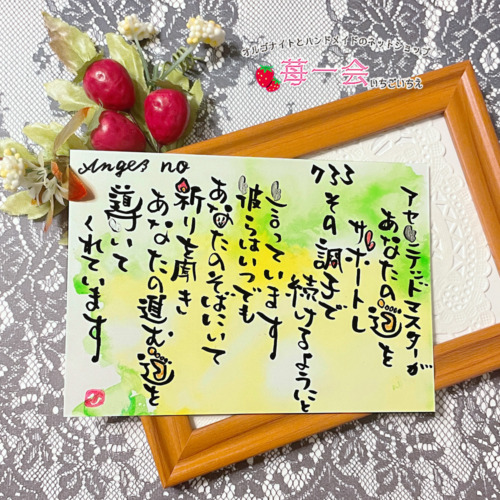 オルゴナイトとハンドメイドのネットショップ
苺一会 いちごいちえ
Angel no
733
アセンデッドマスターが
あなたの道を
サポートし
その調子で
続けるようにと
言っています
彼らはいつでも
あなたのそばにいて
祈りを聞き
あなたの進む道を
導いて
くれています